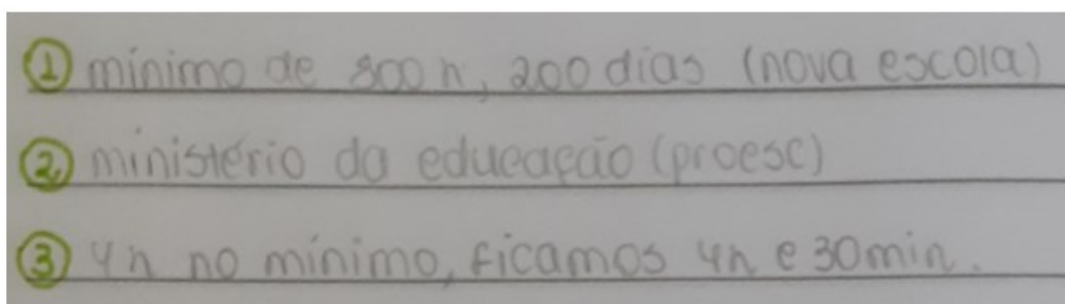 ① mínimo de 800 h, 200 dias (nova escola)
② ministério da educação (proesc)
③ 4h no mínimo, ficamos 4h e 30min.